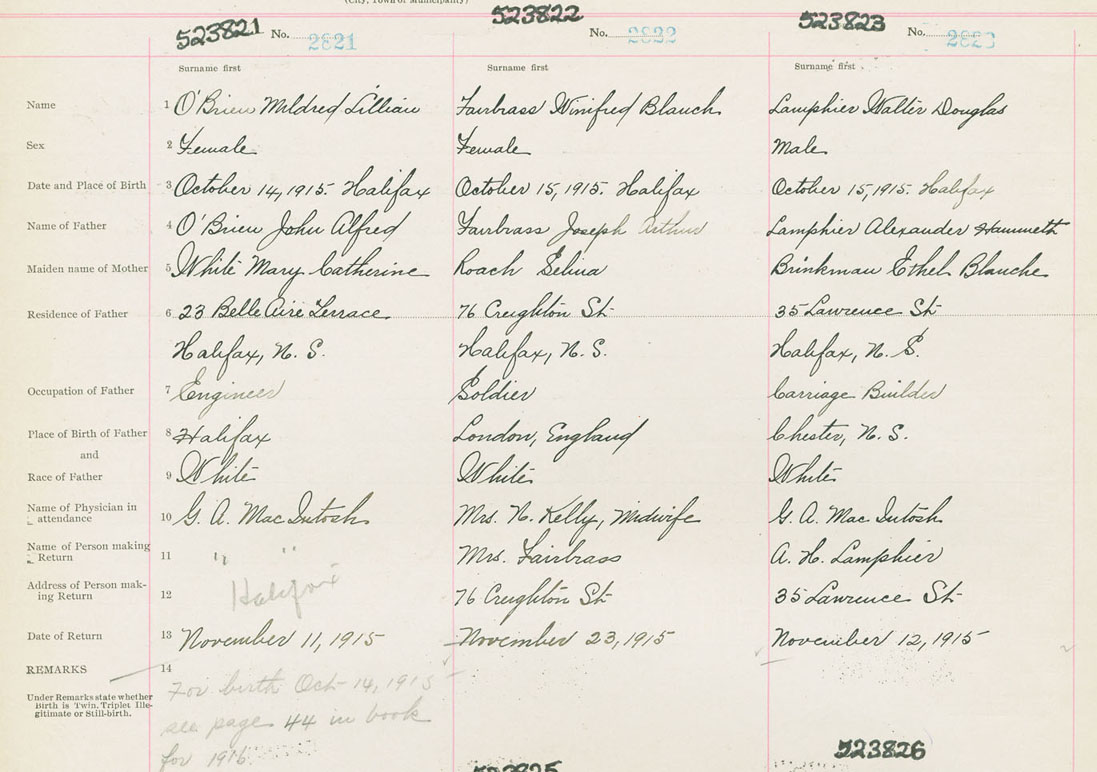 (City, Town or Municipality)
523821 No. 2821
523822 No. 2822
523823 No. 2823
Surname first Surname first Surname first
Name 1 O'Brien Mildred Lillian Fairbrass Winifred Blanch Lamphier Walter Douglas
Sex 2 Female Female Male
Date and Place of Birth 3 October 14, 1915 Halifax October 15, 1915. Halifax October 15, 1915. Halifax
Name of Father 4 O'Brien John Alfred Fairbrass Joseph Arthur Lamphier Alexander Hammeth
Maiden name of Mother 5 White Mary Catherine Roach Selina Brinkman Ethel Blanche
Residence of Father 6 23 Belle Aire Terrace 76 Creighton St 35 Lawrence St
Halifax, N. S. Halifax, N. S. Halifax, N. S.
Occupation of Father 7 Engineer Soldier Carriage Builder
Place of Birth of Father 8 Halifax London, England Chester, N. S.
and
Race of Father 9 White White White
Name of Physician in
attendance 10 G. A. MacIntosh Mrs. N. Kelly, Midwife G. A. MacIntosh
Name of Person making
Return 11 " " Mrs. Fairbrass A. H. Lamphier
Address of Person mak-
ing Return 12 Halifax 76 Creighton St 35 Lawrence St
Date of Return 13 November 11, 1915 November 23, 1915 November 12, 1915
REMARKS 14
For birth Oct 14, 1915
see page 44 in book
for 1916
Under Remarks state whether
Birth is Twin, Triplet Ille-
gitimate or Still-birth.
523825
523826